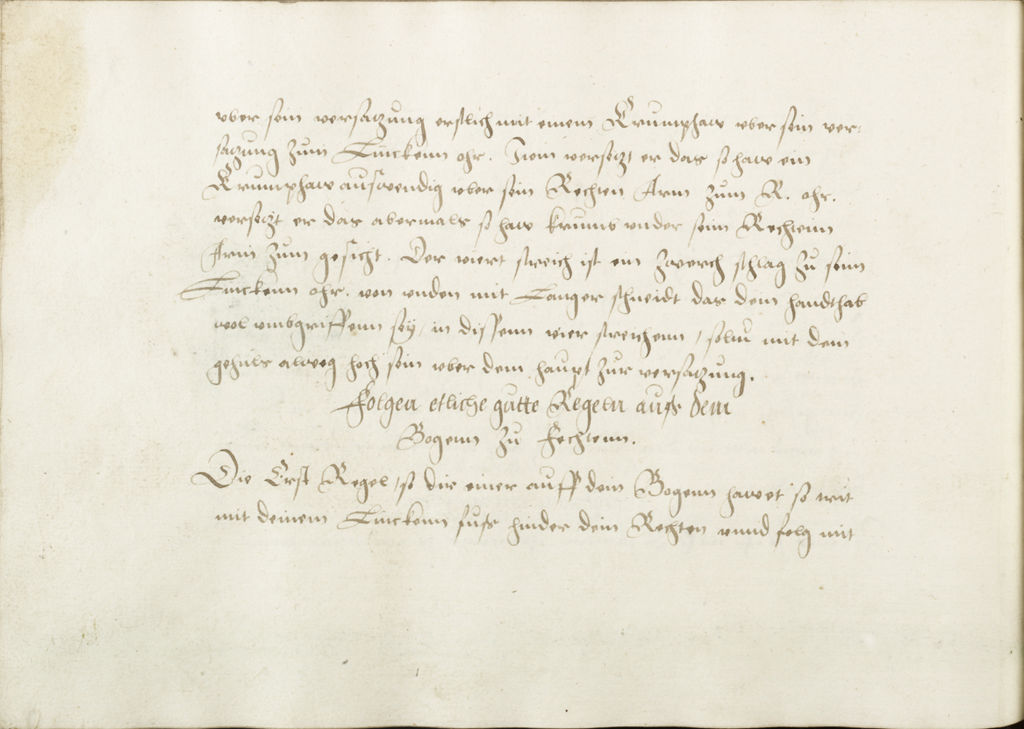 vber sein versatzung erstlich mit einem Crumphaw vber sein ver-
satzung zum Linckenn ohr. Item versetzt er das so haw ein
Krumphaw auswendig vber sein Rechten Arm zum R. ohr.
versetzt er das abermals so haw krumb vnder seim Rechtenn
Arm zum gesicht. Der viert streich ist ein zwerch schlag zu seim
Linckenn ohr. von vnden mit Langer schneidt das dein handthab
wol vmbgriffenn sey, in dissenn vier streichenn, soltu mit dem
gehults alweg hoch sein vber dem haupt zur versatzung.
Folgen etliche gutte Regeln auss dem
Bogenn zu Fechtenn.
Die Erst Regel, so dir einer auff dein Bogenn hawet so trit
mit deinem Lincken fuss hinder dein Rechten vnnd folg mit